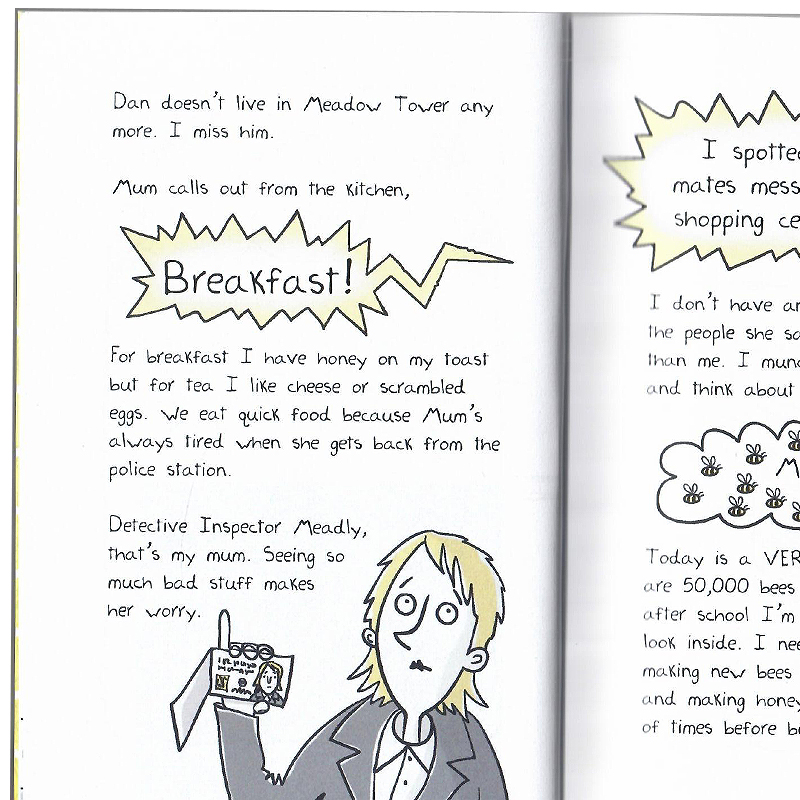 Dan doesn't live in Meadow Tower any
more. I miss him.
Mum calls out from the kitchen,
Breakfast!
For breakfast I have honey on my toast
but for tea I like cheese or scrambled
eggs. We eat quick food because Mum's
always tired when she gets back from the
police station.
Detective Inspector Meadly,
that's my mum. Seeing so
much bad stuff makes
her worry.
I spotted
mates mess
shopping ce
I don't have
the people she
than me. I
and think about
M
Today is a VER
are 50,000 bees
after school I'm
look inside. I nee
making new bees
and making honey
of times before